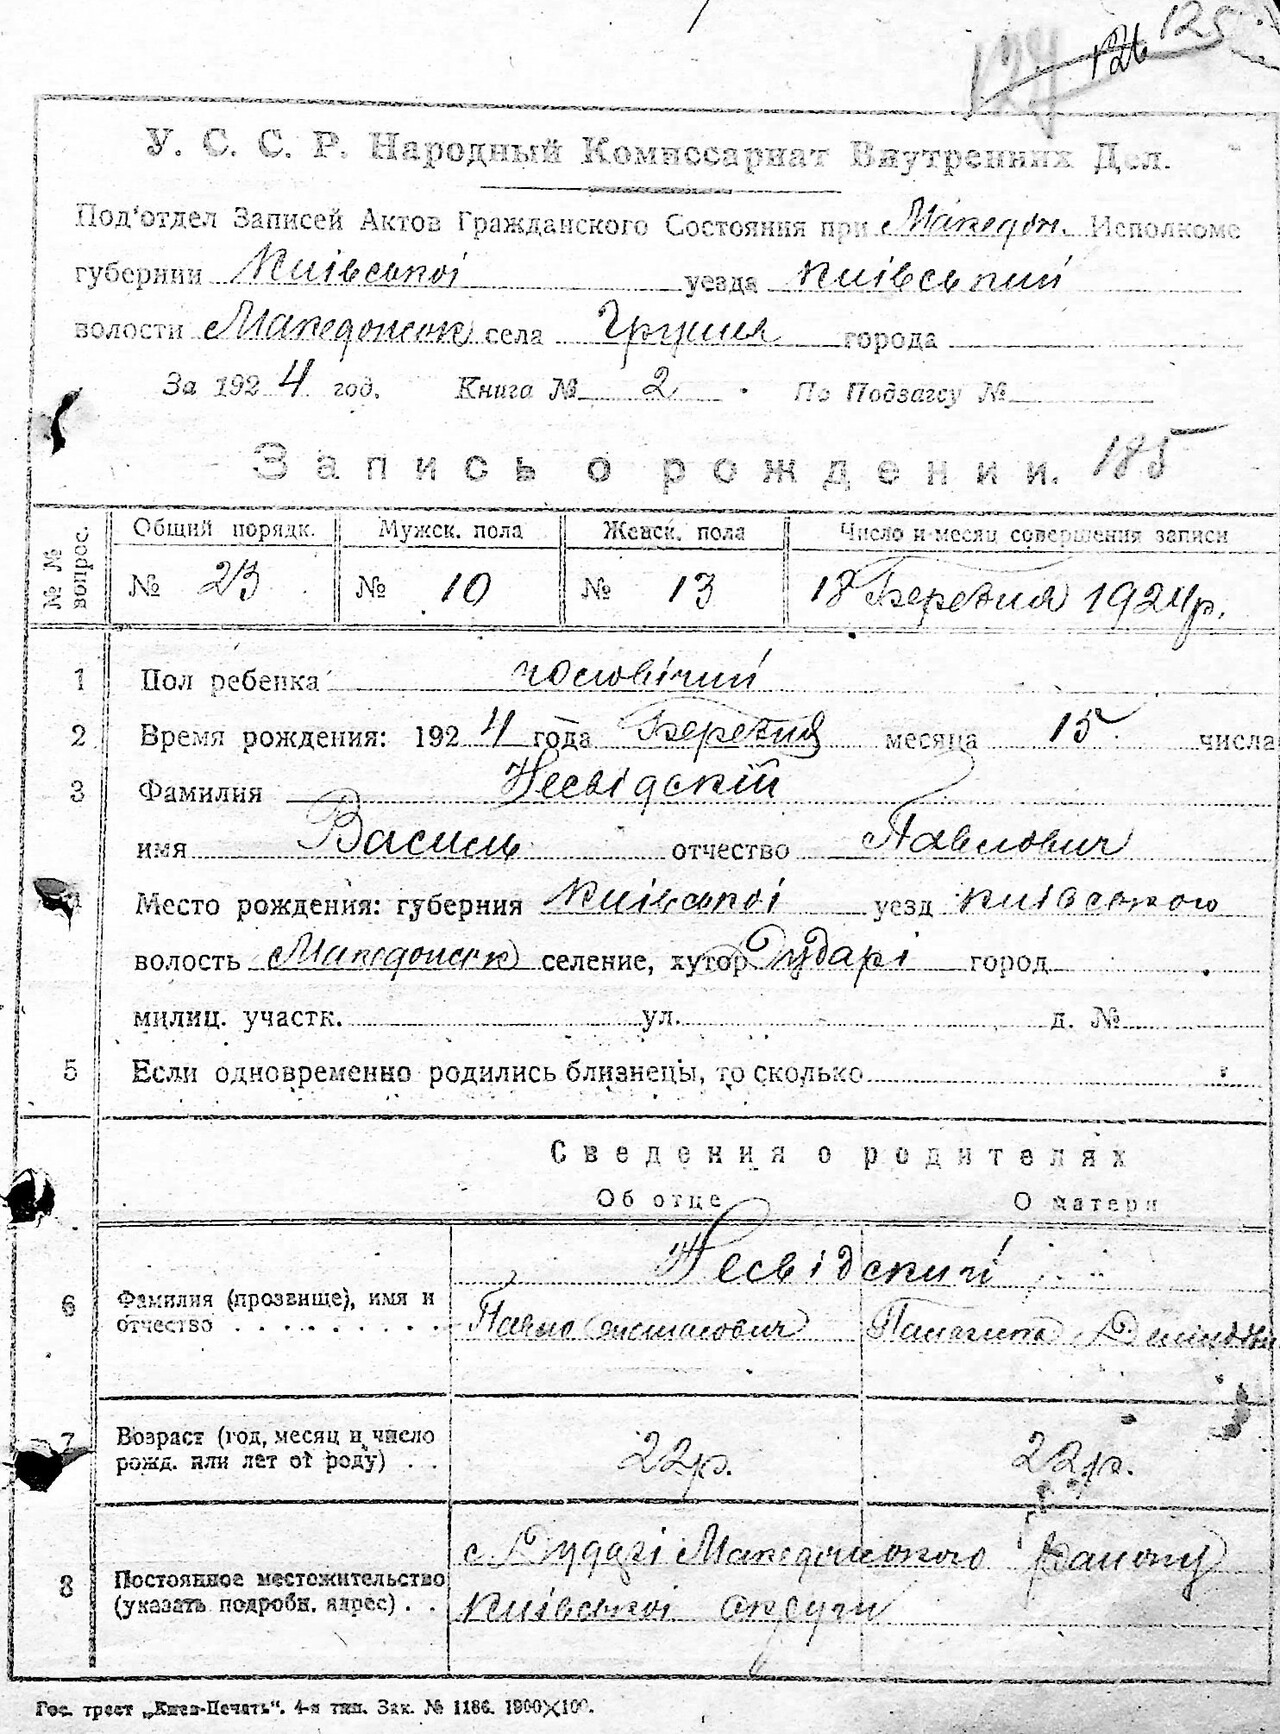 125
126
127
У. С. С. Р. Народный Комиссариат Внутренних Дел.
Под'отдел Записей Актов Гражданского Состояния при Македон. Исполкоме
губернии Київської уезда Київський
волости Македонськ села города
За 1924 год. Книга № 2 По Подзагсу №
Запись о рождении. 185
№ № вопрос. Общий порядк. Мужск. пола Женск. пола Число и месяц совершения записи
№ 23 № 10 № 13 18 Березня 1924р.
1 Пол ребенка чоловічий
2 Время рождения: 1924 года Березня месяца 15 числа
3 Фамилия Несвідский
имя Василь отчество Павлович
4 Место рождения: губерния Київської уезд Київського
волость Македонськ селение, хутор Дударі город
милиц. участк. ул. д. №
5 Если одновременно родились близнецы, то сколько
Сведения о родителях
Об отце О матери
Несвідский
6 Фамилия (прозвище), имя и
отчество Павло
7 Возраст (год, месяц и число
рожд. или лет от роду) 22р. 22р.
с Дударі Македонського Району
8 Постоянное местожительство
(указать подробн. адрес) Київської округи
Гос. трест „Киев-Печать“. 4-я тип. Зак. № 1186. 1900×100.